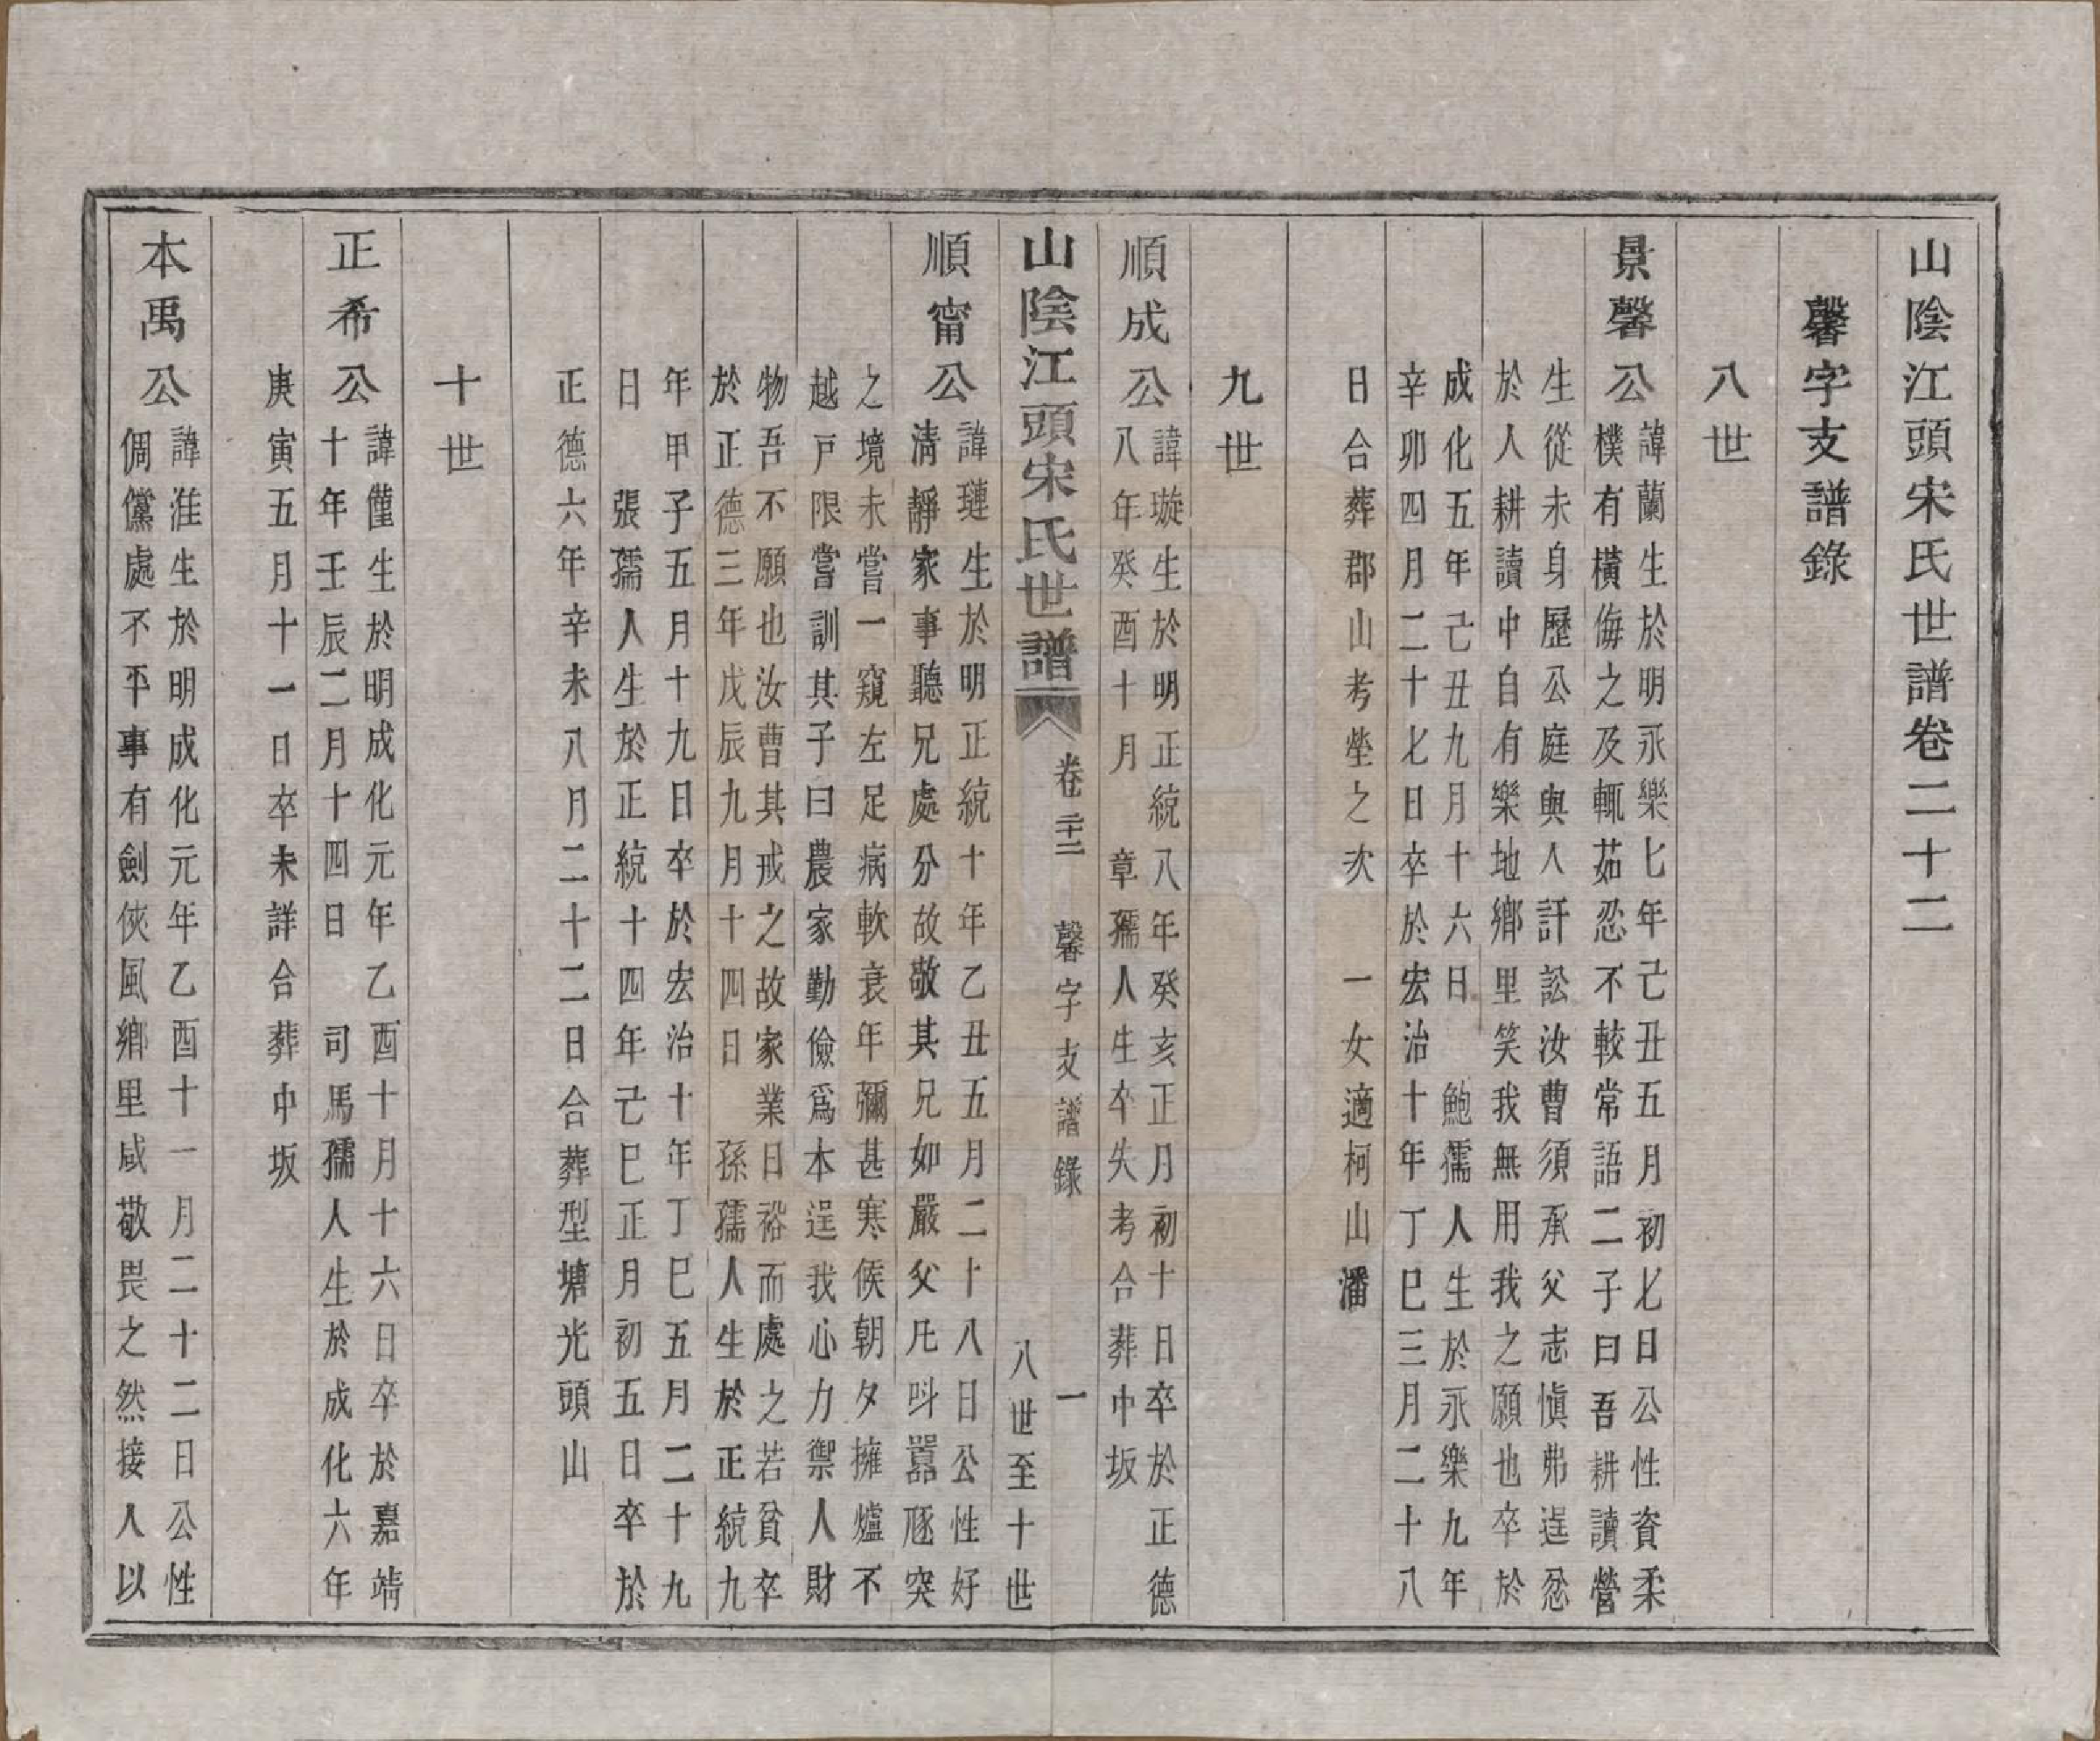 山陰江頭宋氏世譜卷二十二
馨字支譜錄
八世
景馨公
諱蘭生於明永樂七年己丑五月初七日公性資柔
樸有橫侮之及輒茹忍不較常語二子曰吾耕讀營
生從未身歷公庭與人訐訟汝曹須承父志慎弗逞忿
於人耕讀中自有樂地鄉里笑我無用我之願也卒於
成化五年己丑九月十六日 鮑孺人生於永樂九年
辛卯四月二十七日卒於宏治十年丁巳三月二十八
日合葬郡山考塋之次 一女適柯山潘
九世
順成公
諱璇生於明正統八年癸亥正月初十日卒於正德
八年癸酉十月 章孺人生卒失考合葬中坂
山陰江頭宋氏世譜
卷二十二 馨字支譜錄 一
八世至十世
順甯公
諱璉生於明正統十年乙丑五月二十八日公性好
清靜家事聽兄處分故敬其兄如嚴父凡呌囂豗突
之境未嘗一窺左足病軟衰年彌甚寒候朝夕擁爐不
越戸限嘗訓其子曰農家勤儉爲本逞我心力禦人財
物吾不願也汝曹其戒之故家業日裕而處之若貧卒
於正德三年戊辰九月十四日 孫孺人生於正統九
年甲子五月十九日卒於宏治十年丁巳五月二十九
日 張孺人生於正統十四年己巳正月初五日卒於
正德六年辛未八月二十二日合葬型塘光頭山
十世
正希公
諱僅生於明成化元年乙酉十月十六日卒於嘉靖
十年壬辰二月十四日 司馬孺人生於成化六年
庚寅五月十一日卒未詳合葬中坂
本禹公
諱淮生於明成化元年乙酉十一月二十二日公性
倜儻處不平事有劍俠風鄉里咸敬畏之然接人以